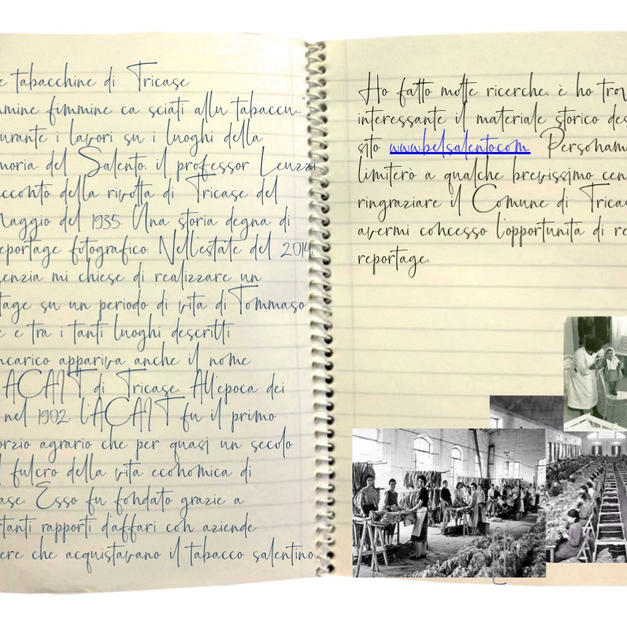 e tabacchine di Tricase
mmine fimmine ca sciati allu tabaccu."
urante i lavori su i luoghi della
moria del Salento, il professor Leuzzi
acconto della rivolta di Tricase del
Maggio del 1935. Una storia degna di
eportage fotografico. Nell'estate del 2014
enzia mi chiese di realizzare un
tage su un periodo di vita di Tommaso
e e tra i tanti luoghi descritti
ncarico appariva anche il nome
ACAIT di Tricase. All'epoca dei
nel 1902, l'ACAIT fu il primo
orzio agrario che per quasi un secolo
l fulcro della vita economica di
ase. Esso fu fondato grazie a
tanti rapporti d'affari con aziende
ere che acquistavano il tabacco salentino.
Ho fatto molte ricerche, è ho trov
interessante il materiale storico des
sito www.belsalento.com. Personam
limiterò a qualche brevissimo cen
ringraziare il Comune di Trica
avermi concesso l'opportunità di re
reportage.